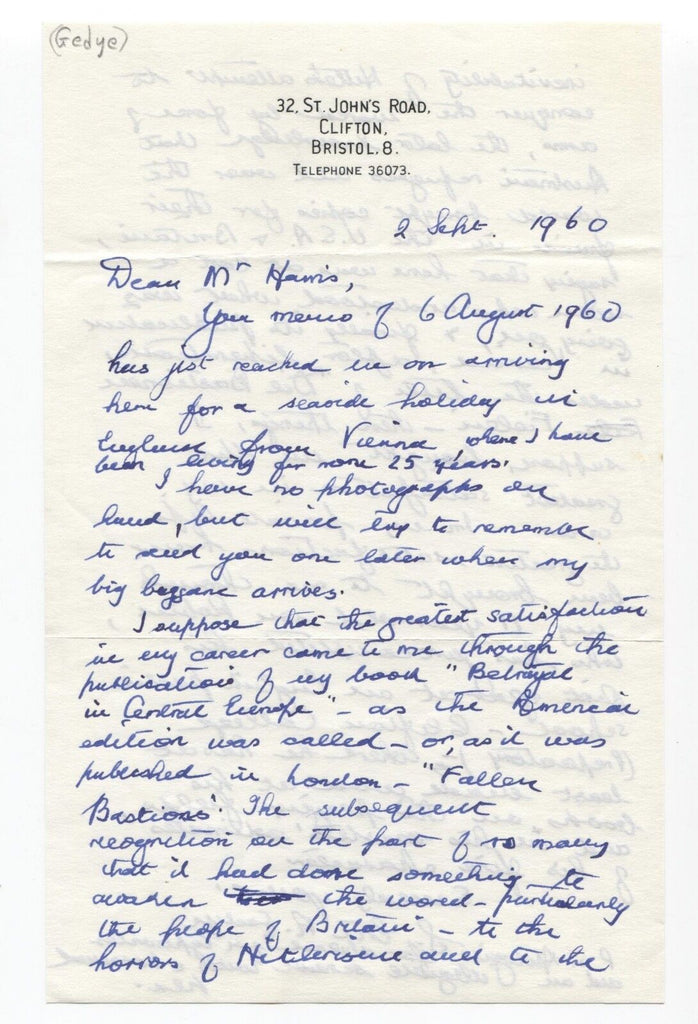 (Gedye)
32, ST. JOHN'S ROAD,
CLIFTON,
BRISTOL. 8.
TELEPHONE 36073.
2 Sept. 1960
Dear Mr Harris,
Your memo of 6 August 1960
has just reached me on arriving
here for a seaside holiday in
England from Vienna, where I have
been living for some 25 years.
I have no photographs on
hand, but will try to remember
to send you one later when my
big baggage arrives.
I suppose that the greatest satisfaction
in my career came to me through the
publication of my book "Betrayal
in Central Europe" – as the American
edition was called – or, as it was
published in London – "Fallen
Bastions". The subsequent
recognition on the part of so many
that it had done something to
awaken the world – particularly
the people of Britain – to the
horrors of Hitlerism and to the